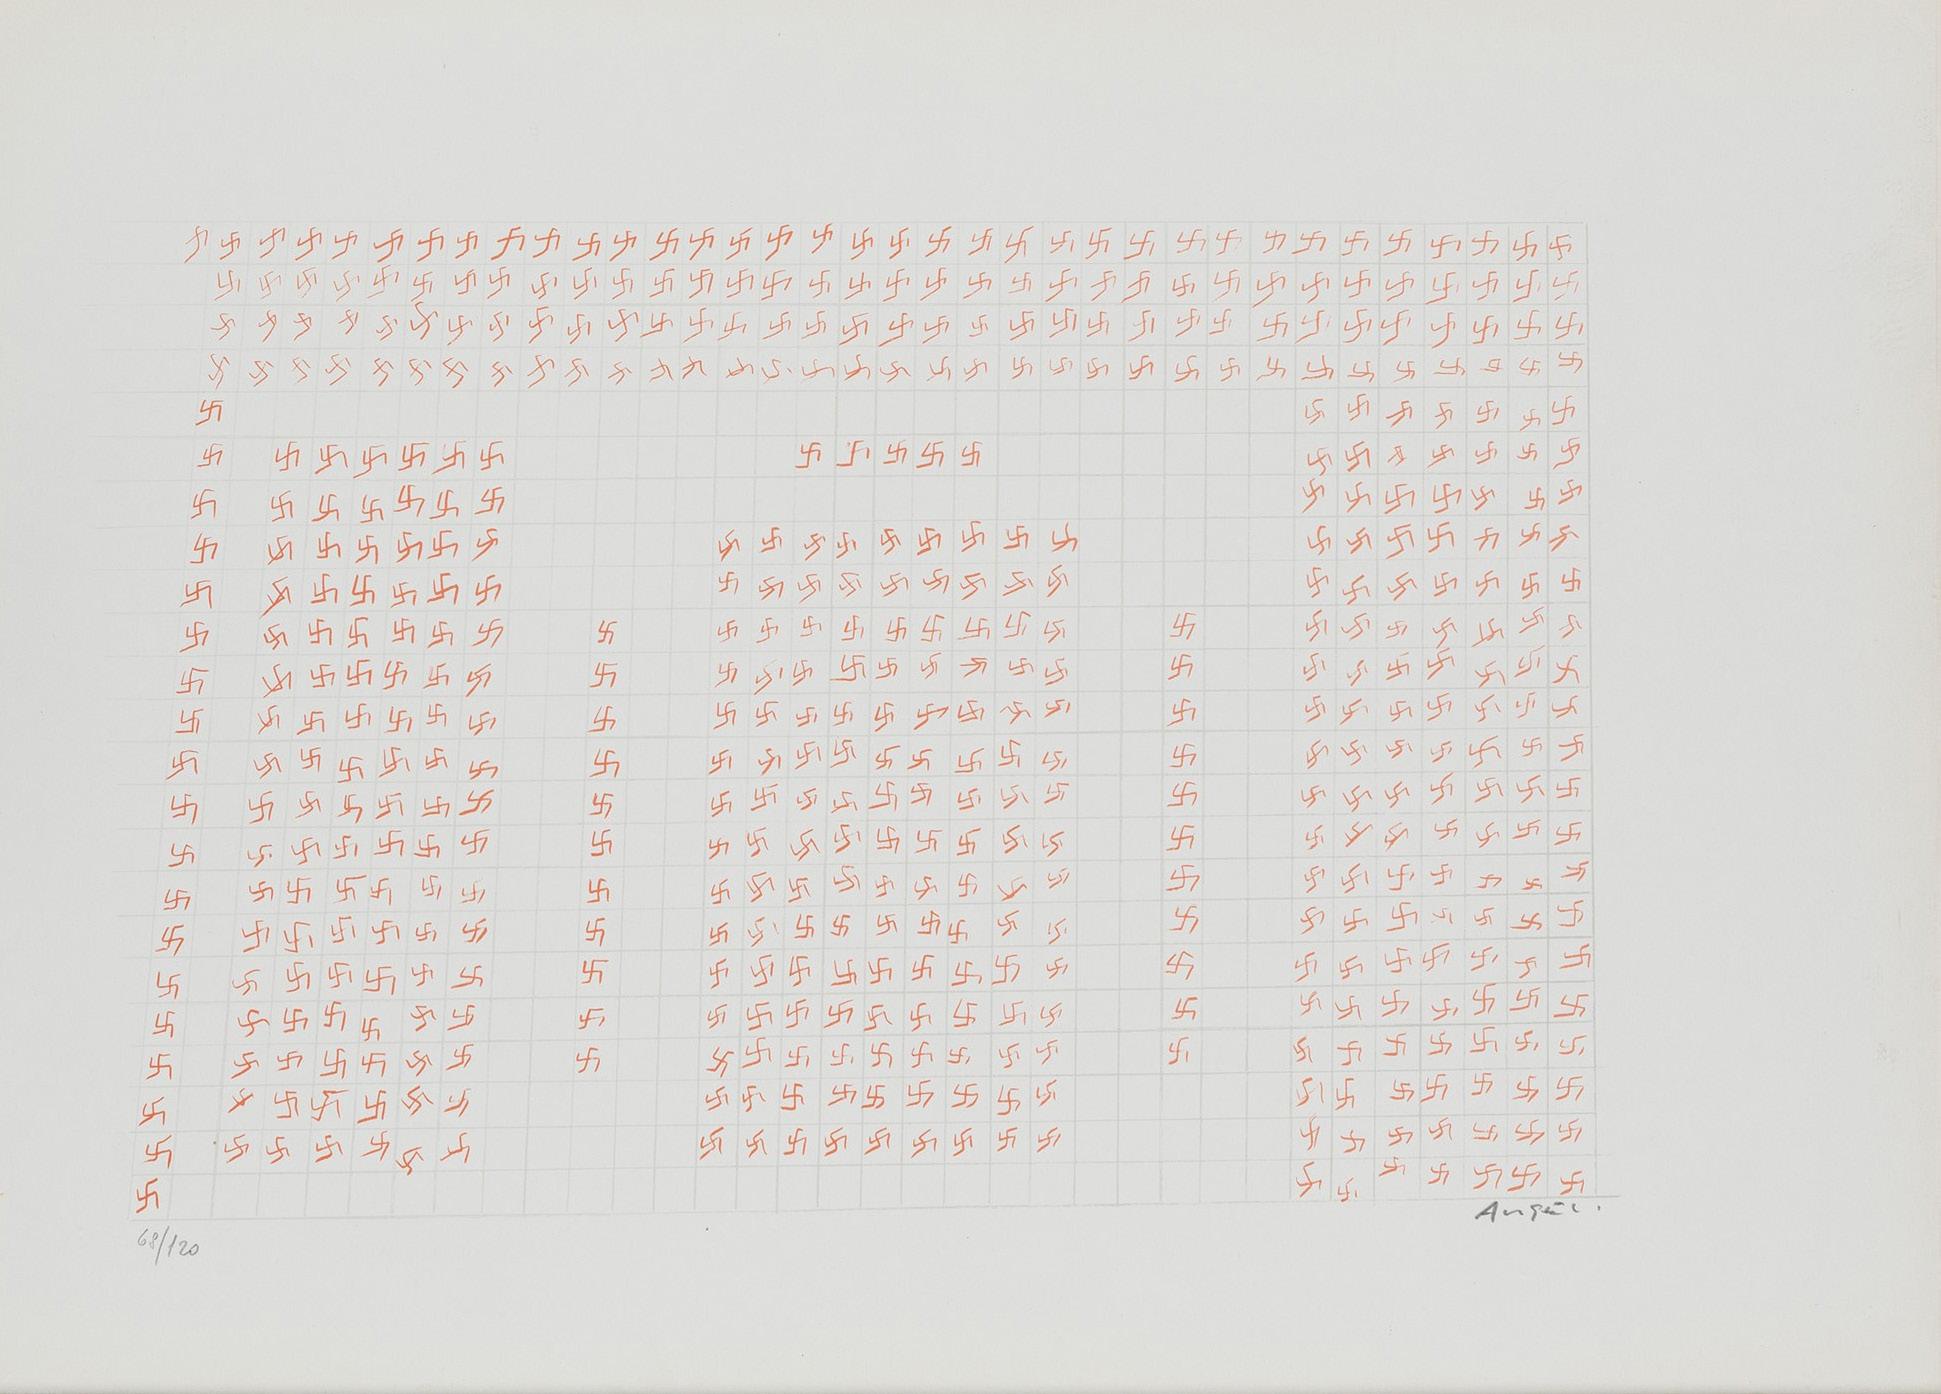 68/120
Angeli.